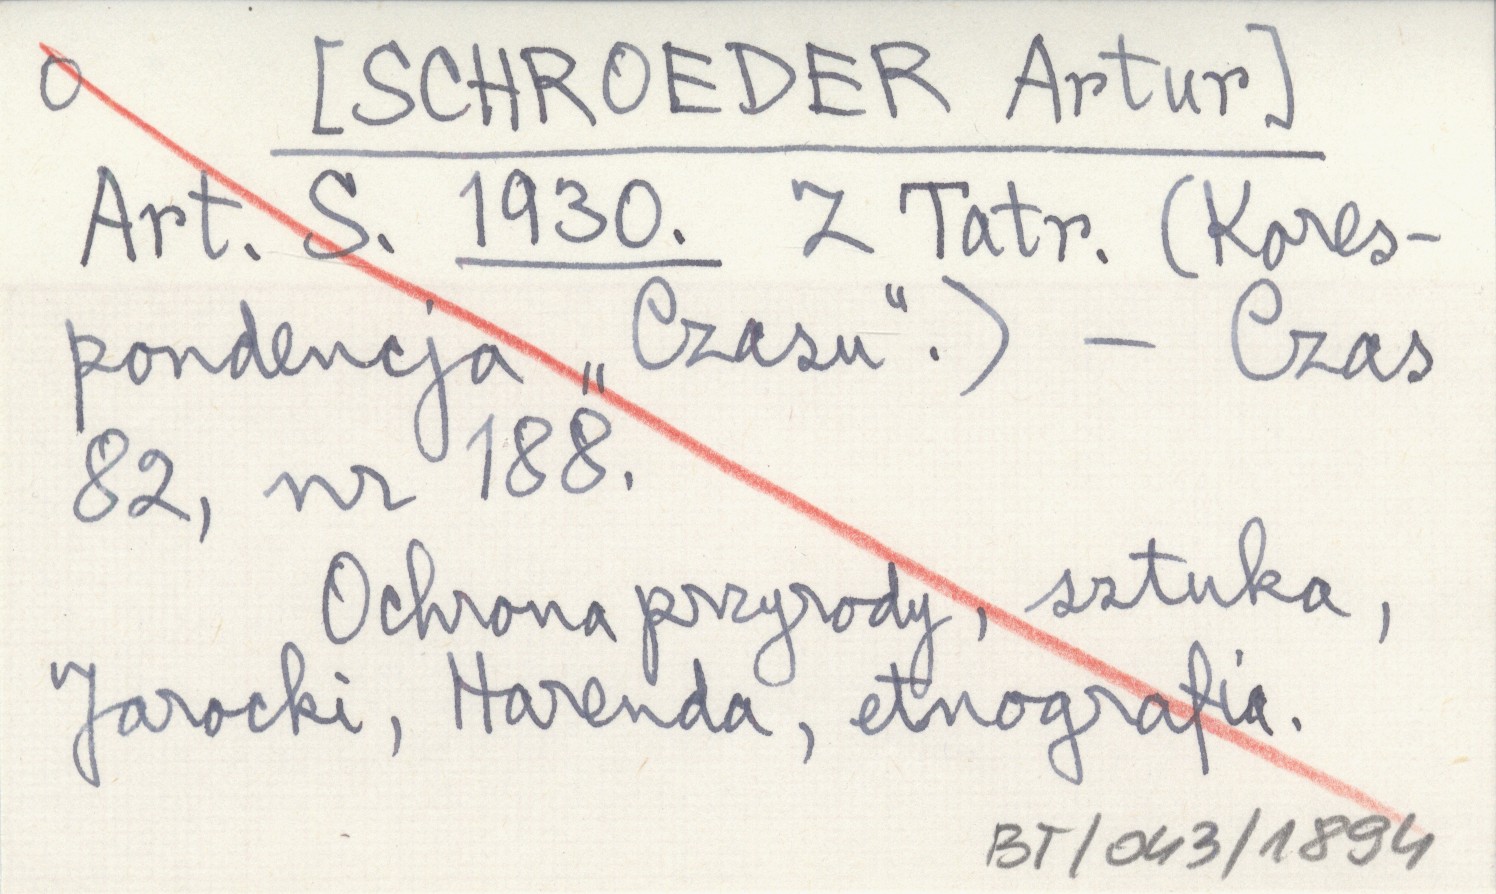 O [SCHROEDER Artur]
Art. S. 1930. Z Tatr. (Kores-
pondencja „Czasu".) — Czas
82, nr 188.
Ochrona przyrody, sztuka,
Jarocki, Harenda, etnografia.
BT/043/1894